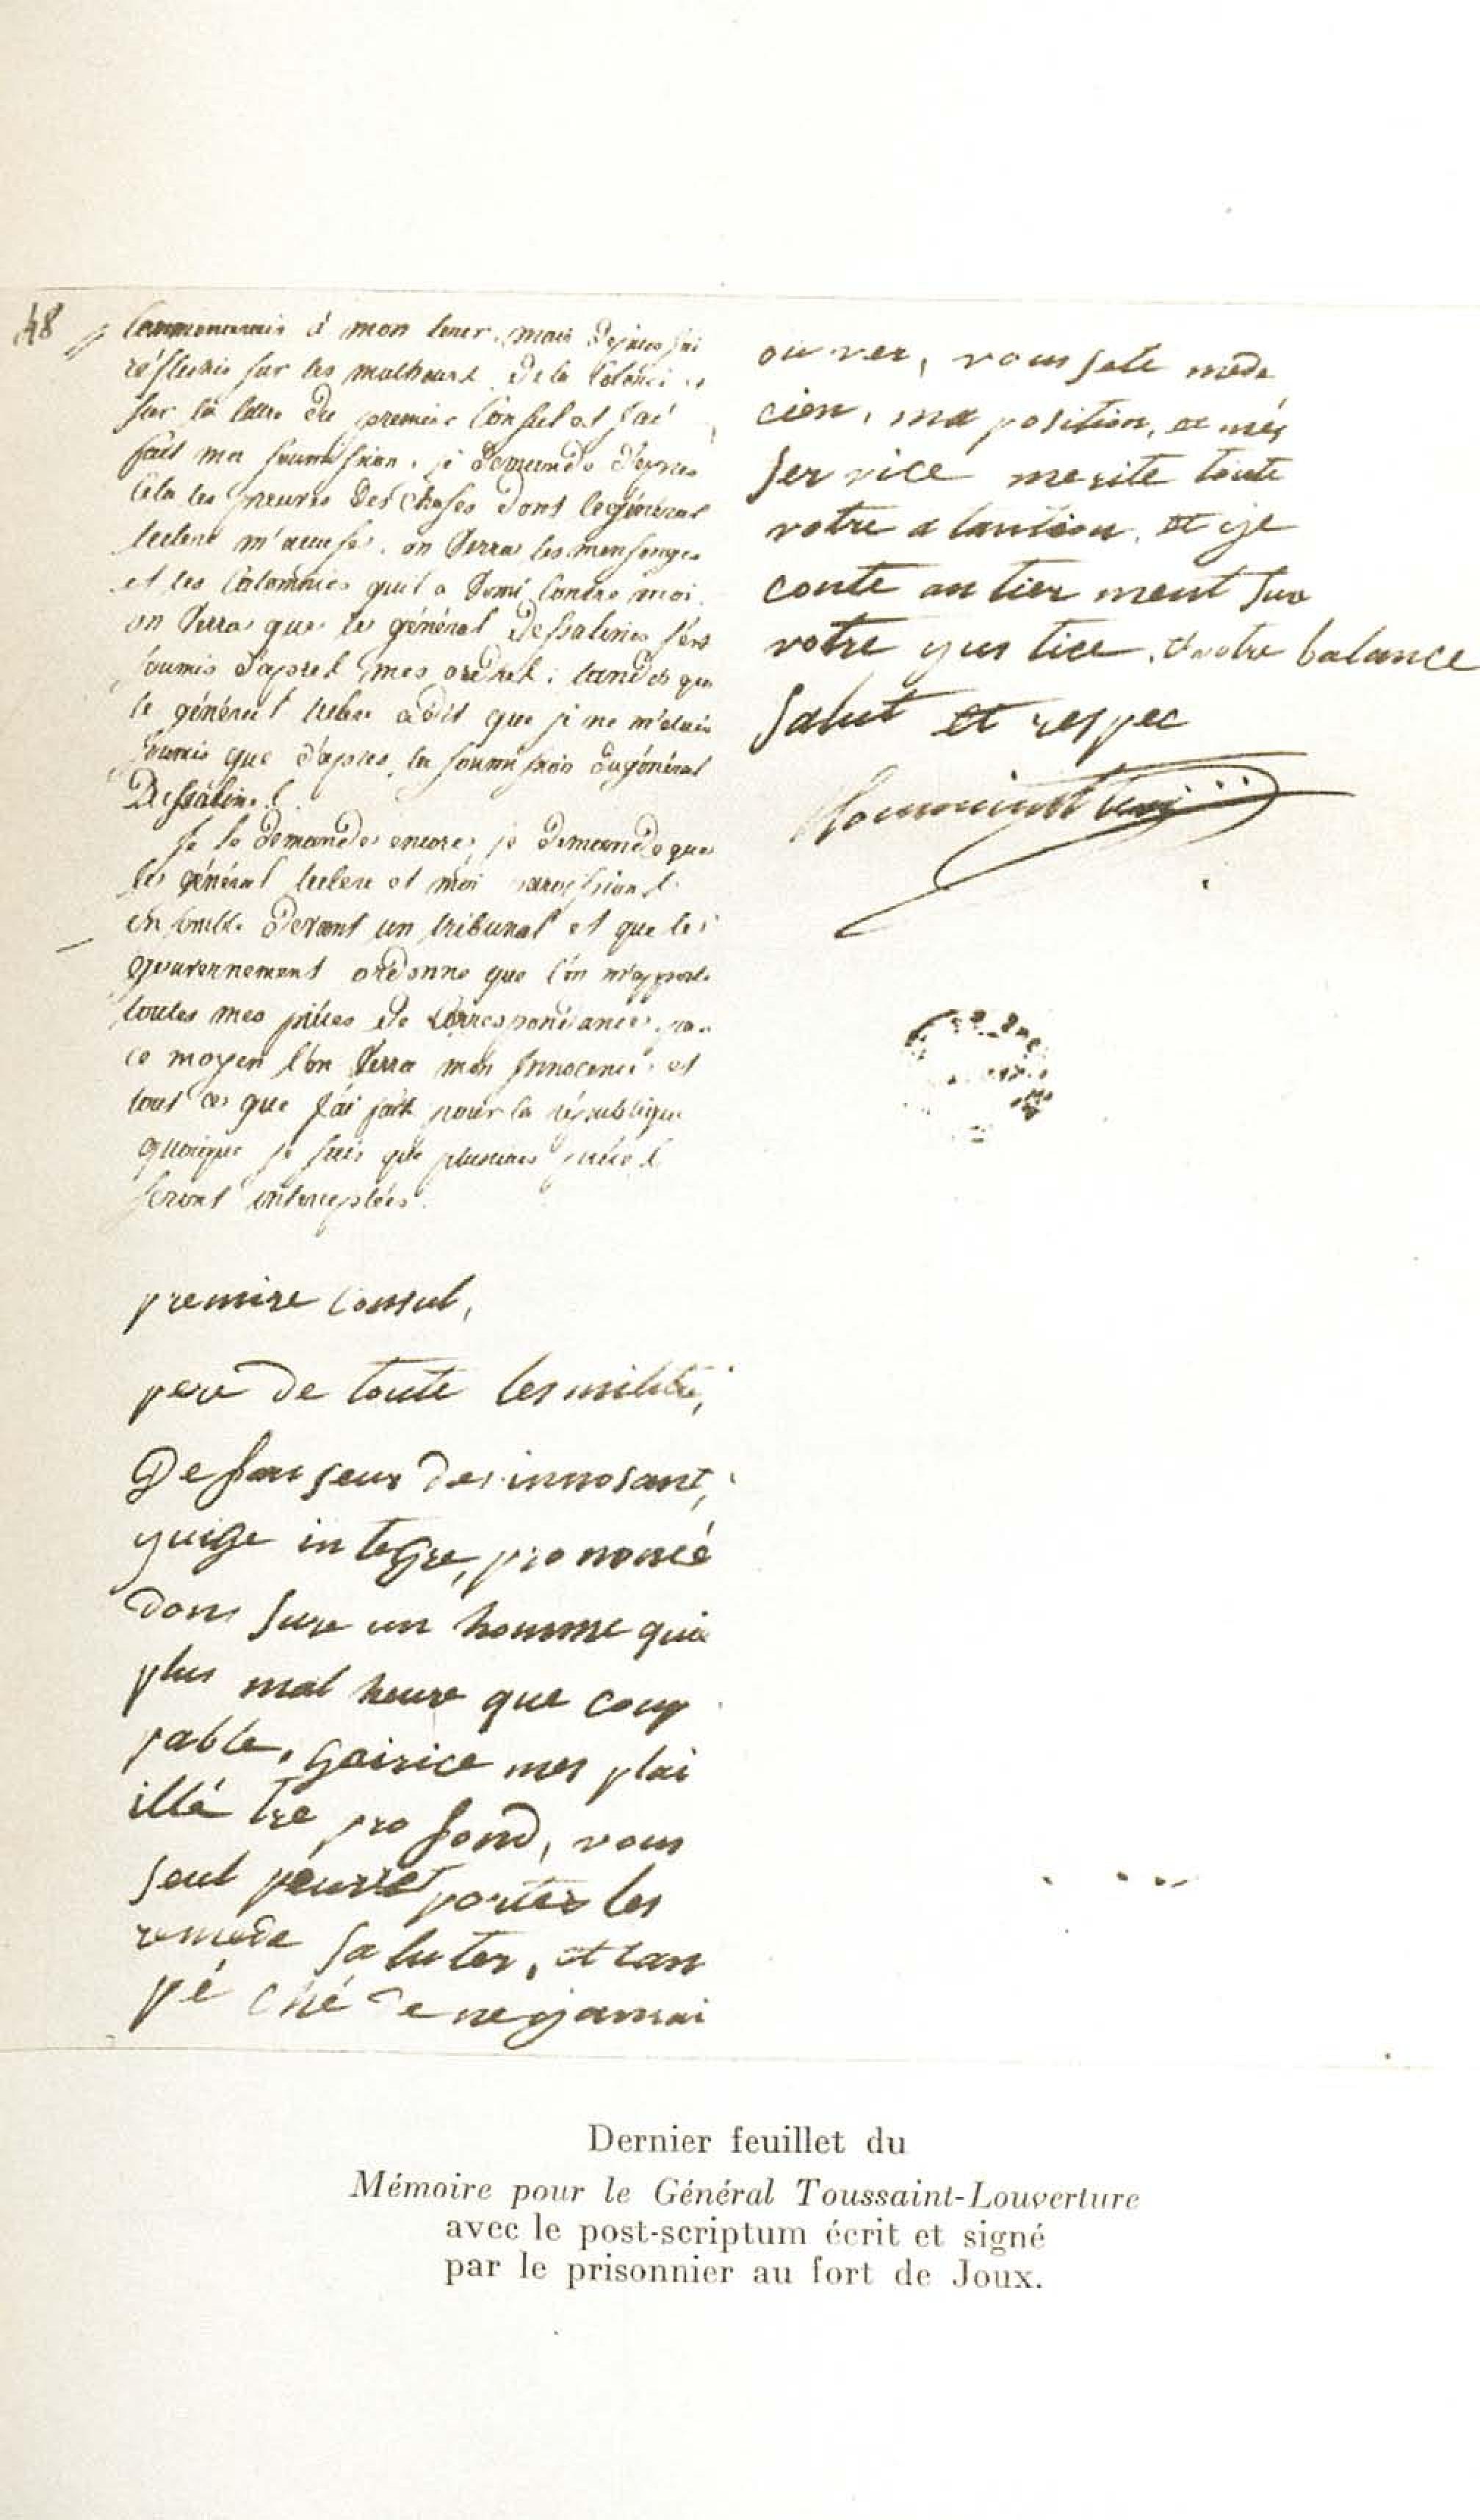 48
Commencais à mon tour. mais depuis j'ai
réfléchis sur les malheurs de la Colonie et
sur la lettre du premier Consul et j'ai
fait ma soumission. je demande d'apres
Cela les preuves des choses dont le général
leclerc m'accuse. on verra les mensonges
et les Calomnies qu'il a contre moi
on verra que le général Dessalines s'est
soumis d'apret mes ordret. tandis que
le général leclerc a dit que je ne m'étais
soumis que d'apres la soumission du général
Dessalines.
Je le demande encore, je demande que
le général leclerc et moi
ensemble devant un tribunal et que le
gouvernement ordonne que l'on m'apporte
toutes mes pièces de Correspondance, par
ce moyen l'on verra mon Innocence et
tout ce que j'ai fait pour la république
quoique je sais que plusieurs pièces
seront interceptées.
premire Consul,
pere de toute les militre,
Defanseur des innosant,
guige integre, prononcé
dons sure un homme quie
plus mal heure que coup
pable, gairice mes plai
illé tre pro fond, vous
seul peuret porter les
remede saluter, et lan
pé ché de ne gjamai
ouver, vous sete mede
cien, ma position, et mes
service merite toute
votre a tantion, et gje
conte an tier ment sure
votre gus tice, et votre balance
Salut et respec
Dernier feuillet du
Mémoire pour le Général Toussaint-Louverture
avec le post-scriptum écrit et signé
par le prisonnier au fort de Joux.